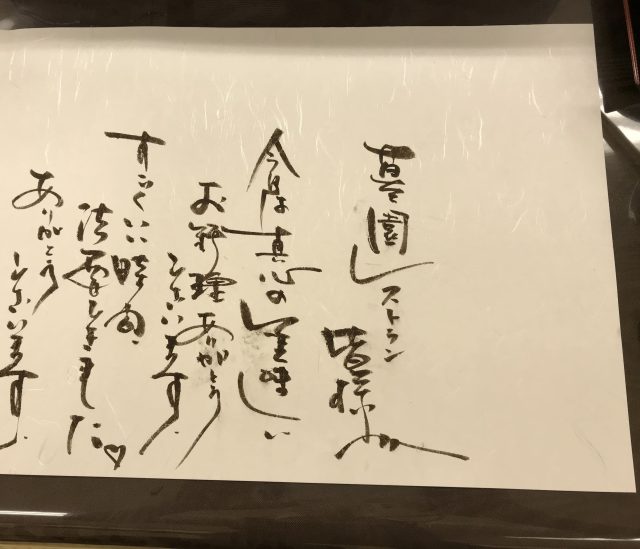 園レストラン
皆様へ
今は真心の美味しい
お料理ありがとう
ございます。
すごくいい時間、
きました♡
ありがとう
ございます。